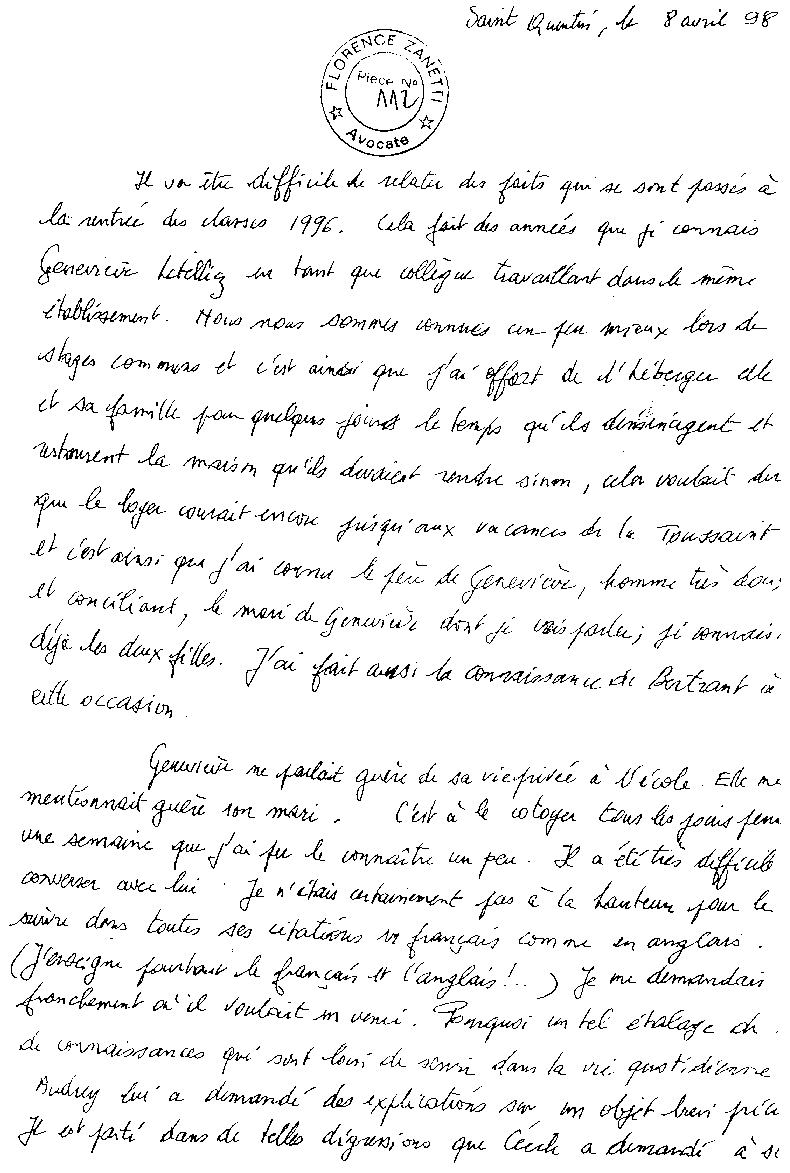 Saint Quentin, le 8 avril 98
FLORENCE ZANETTI
Piece No
112
Avocate
Il va être difficile de relater des faits qui se sont passés à
la rentrée des classes 1996. Cela fait des années que je connais
Geneviève en tant que collègue travaillant dans le même
établissement. Nous nous sommes connues un peu mieux lors de
stages communs et c'est ainsi que j'ai offert de l'héberger elle
et sa famille pour quelques jours le temps qu'ils déménagent et
restaurent la maison qu'ils devaient rendre sinon, cela voulait dir
que le loyer courait encore jusqu'aux vacances de la Toussaint
et c'est ainsi que j'ai connu le père de Geneviève, homme très doux
et conciliant, le mari de Geneviève dont je vais parler; je connais.
déjà les deux filles. J'ai fait aussi la connaissance de Bertrant à
cette occasion.
Geneviève ne parlait guère de sa vie privée à l'école. Elle me
mentionnait guère son mari. C'est à le cotoyer tous les jours pen
une semaine que j'ai pu le connaître un peu. Il a été très difficile
converser avec lui. Je n'étais certainement pas à la hauteur pour le
suivre dans toutes ses citations en français comme en anglais.
(J'enseigne pourtant le français et l'anglais!..) Je me demandais
franchement où il voulait en venir. Pourquoi un tel étalage de
de connaissances qui sont loin de servir dans la vie quotidienne
Audrey lui a demandé des explications sur un objet bien préci
Il est parti dans de telles digressions que Cécile a demandé à se